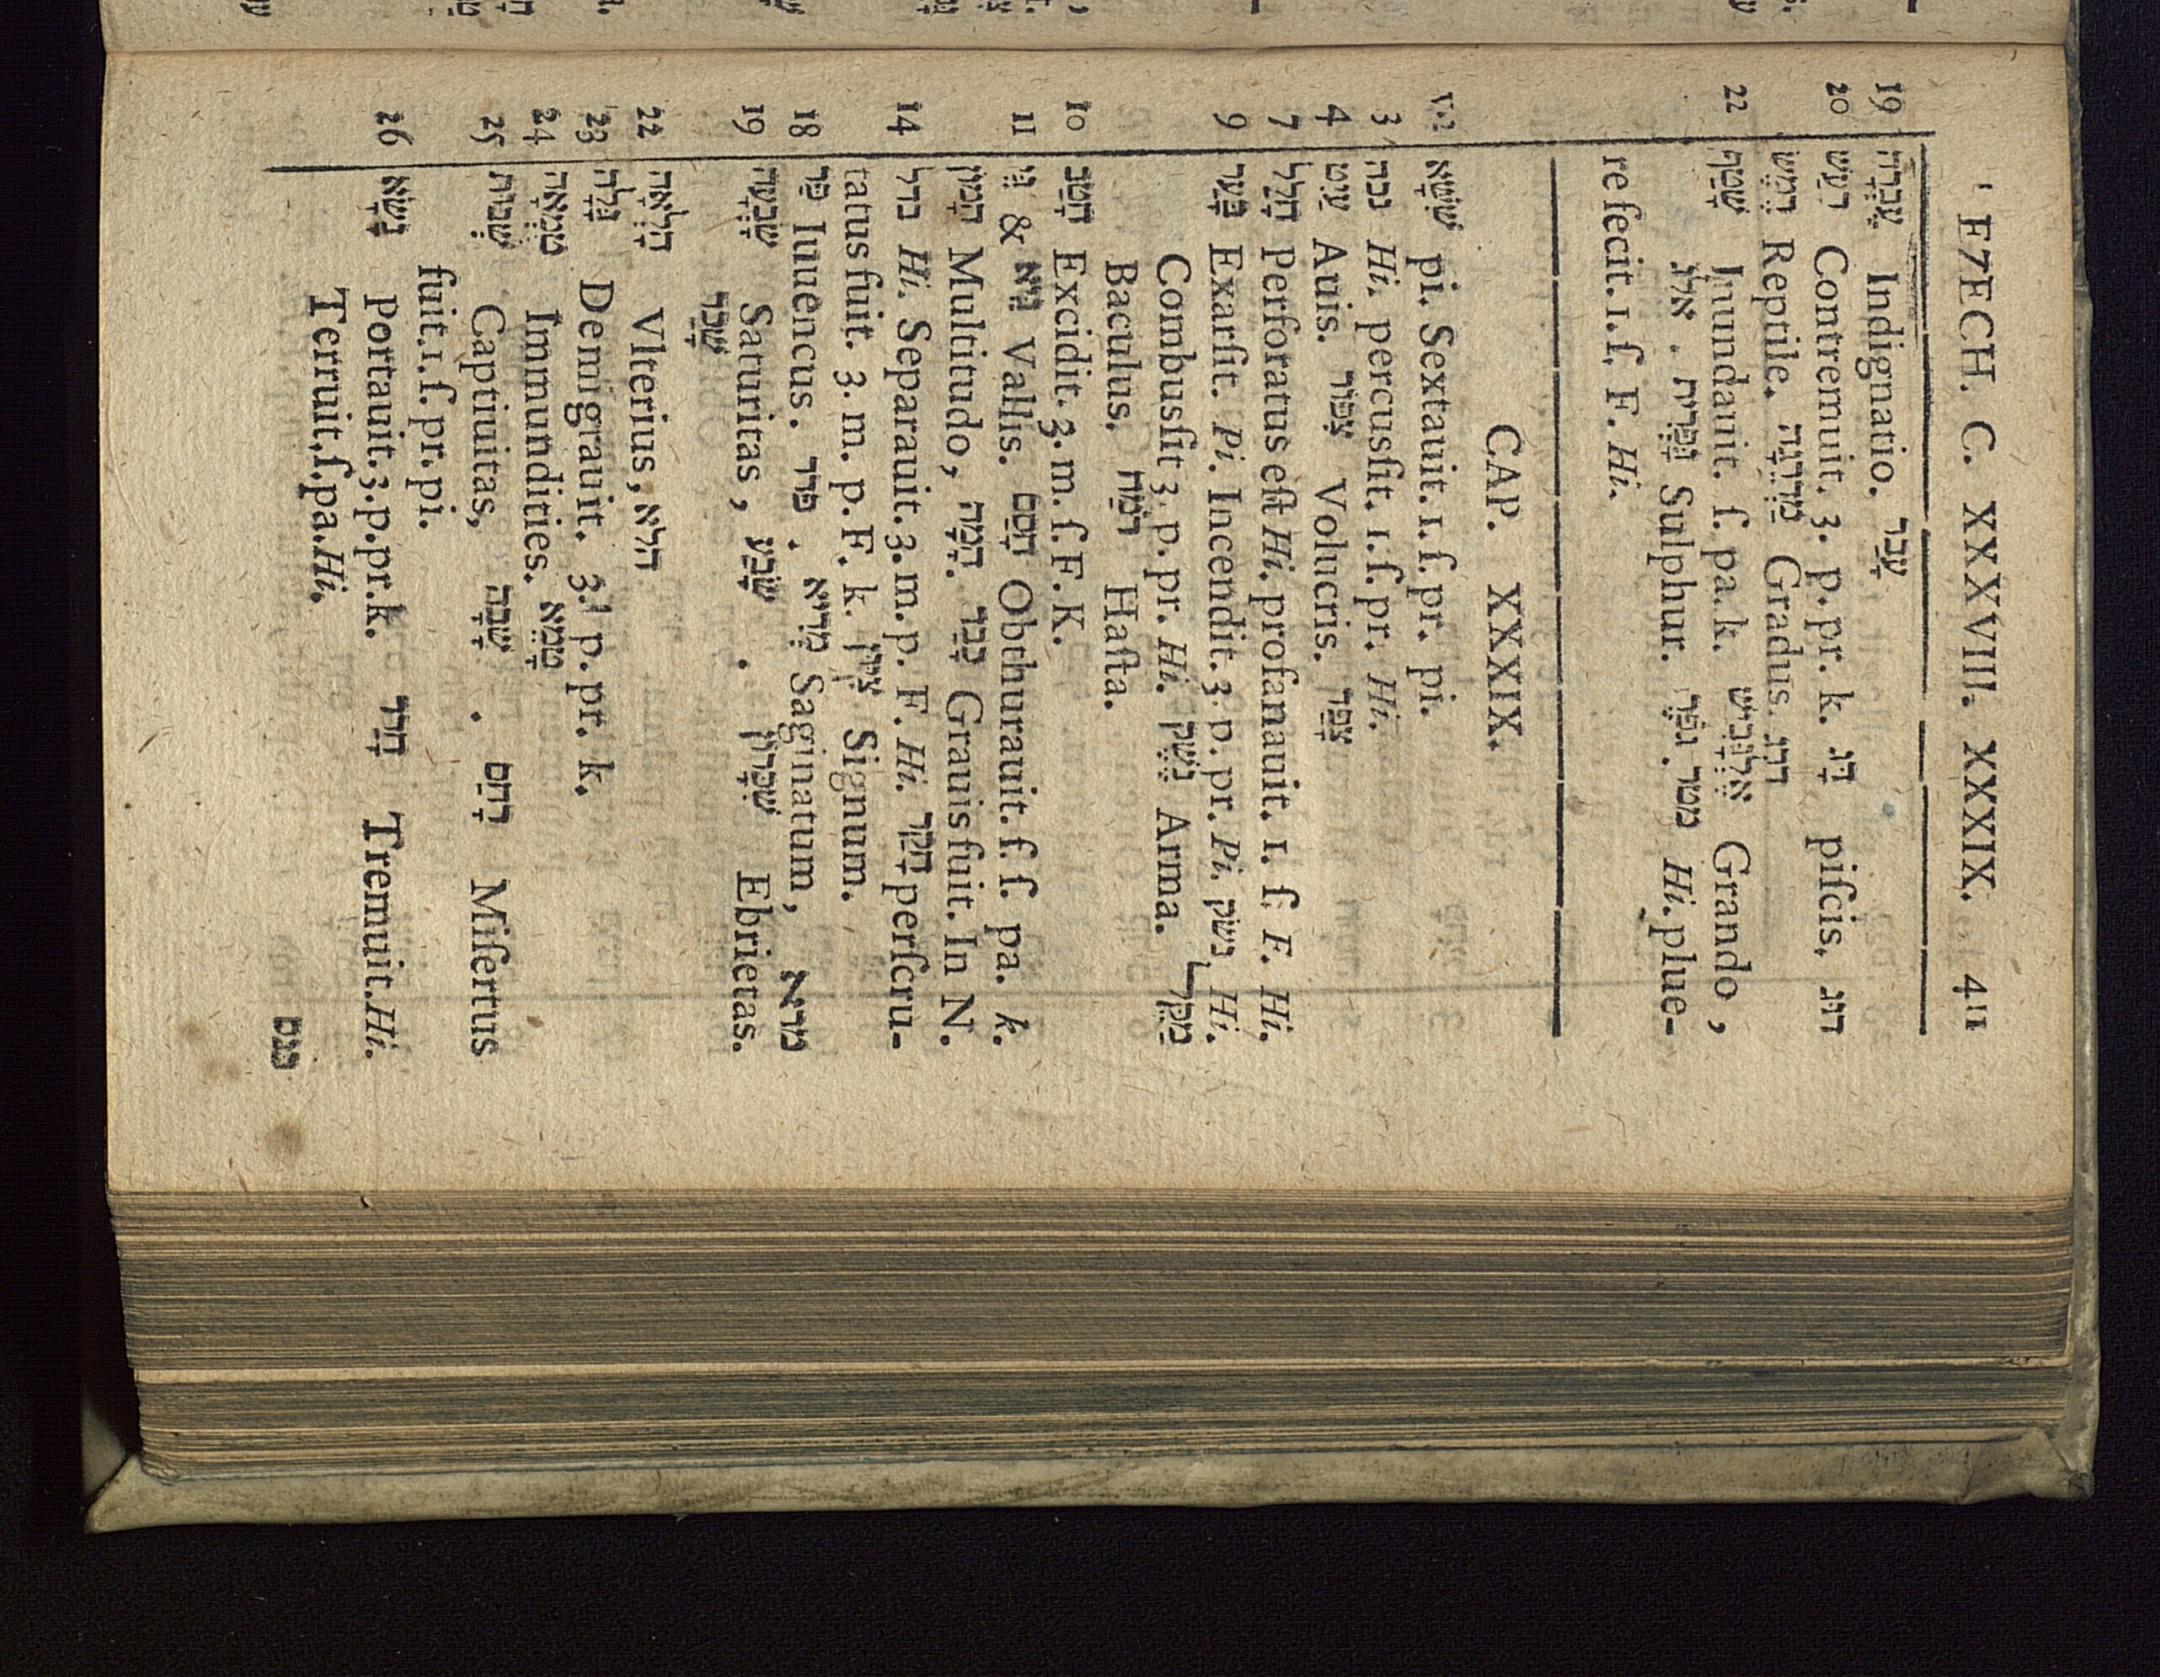 EZECH. C. XXXVIII. XXXIX. 411
19 עֶבְרָה Indignatio. עָבַר
20 רָעַשׁ Contremuit. 3. p. pr. k. דָּג piſcis. דוג
רֶמֶשׂ Reptile. מַדְרֵגָה Gradus. דרג
22 שָׁטַף Inundauit. ſ. pa. k. אֶלְגָּבִישׁ Grando ,
אלג . גָּפְרִית Sulphur. גפר . מטר Hi. plue-
re fecit. 1. ſ. F. Hi.
CAP. XXXIX.
v.2 שִׁשֵּׁא pi. Sextauit. 1. ſ. pr. pi.
3 נכה Hi. percuſſit. 1. ſ. pr. Hi.
4 עַיִט Auis. צִפּוֹר Volucris. צָפַר
7 חָלַל Perforatus eſt Hi. profanauit. 1. ſ. F. Hi.
9 בָּעַר Exarſit. Pi. Incendit. 3. p. pr. Pi. נשׂק Hi.
Combuſſit 3. p. pr. Hi. נֶשֶׁק Arma. מַקֵּל
Baculus. רֹמַח Haſta.
10 חָטַב Excidit. 3. m. ſ. F. K.
11 גַּי & גַּיְא Vallis. חָסַם Obthurauit. ſ. ſ. pa. k.
הָמוֹן Multitudo, הָמָה. כָּבַד Grauis fuit. In N.
14 בדל Hi. Separauit. 3. m. p. F. Hi. חָקַר perſcru-
tatus fuit. 3. m. p. F. k. צִיּוּן Signum.
18 פַּר Iuuencus. פרר . מְרִיא Saginatum, מרא
19 שָׂבְעָה Saturitas , שָׂבַע . שִׁכָּרוֹן Ebrietas.
שָׁכַר
22 הָלְאָה Vlterius, הלא
23 גָּלָה Demigrauit. 3. p. pr. k.
24 טֻמְאָה Immundities. טָמֵא
25 שְׁבוּת Captiuitas, שָׁבָה . רָחַם Miſertus
fuit. 1. ſ. pr. pi.
26 נָשָׂא Portauit. 3. p. pr. k. חָרַד Tremuit. Hi.
Terruit. ſ. pa. Hi.
כנס